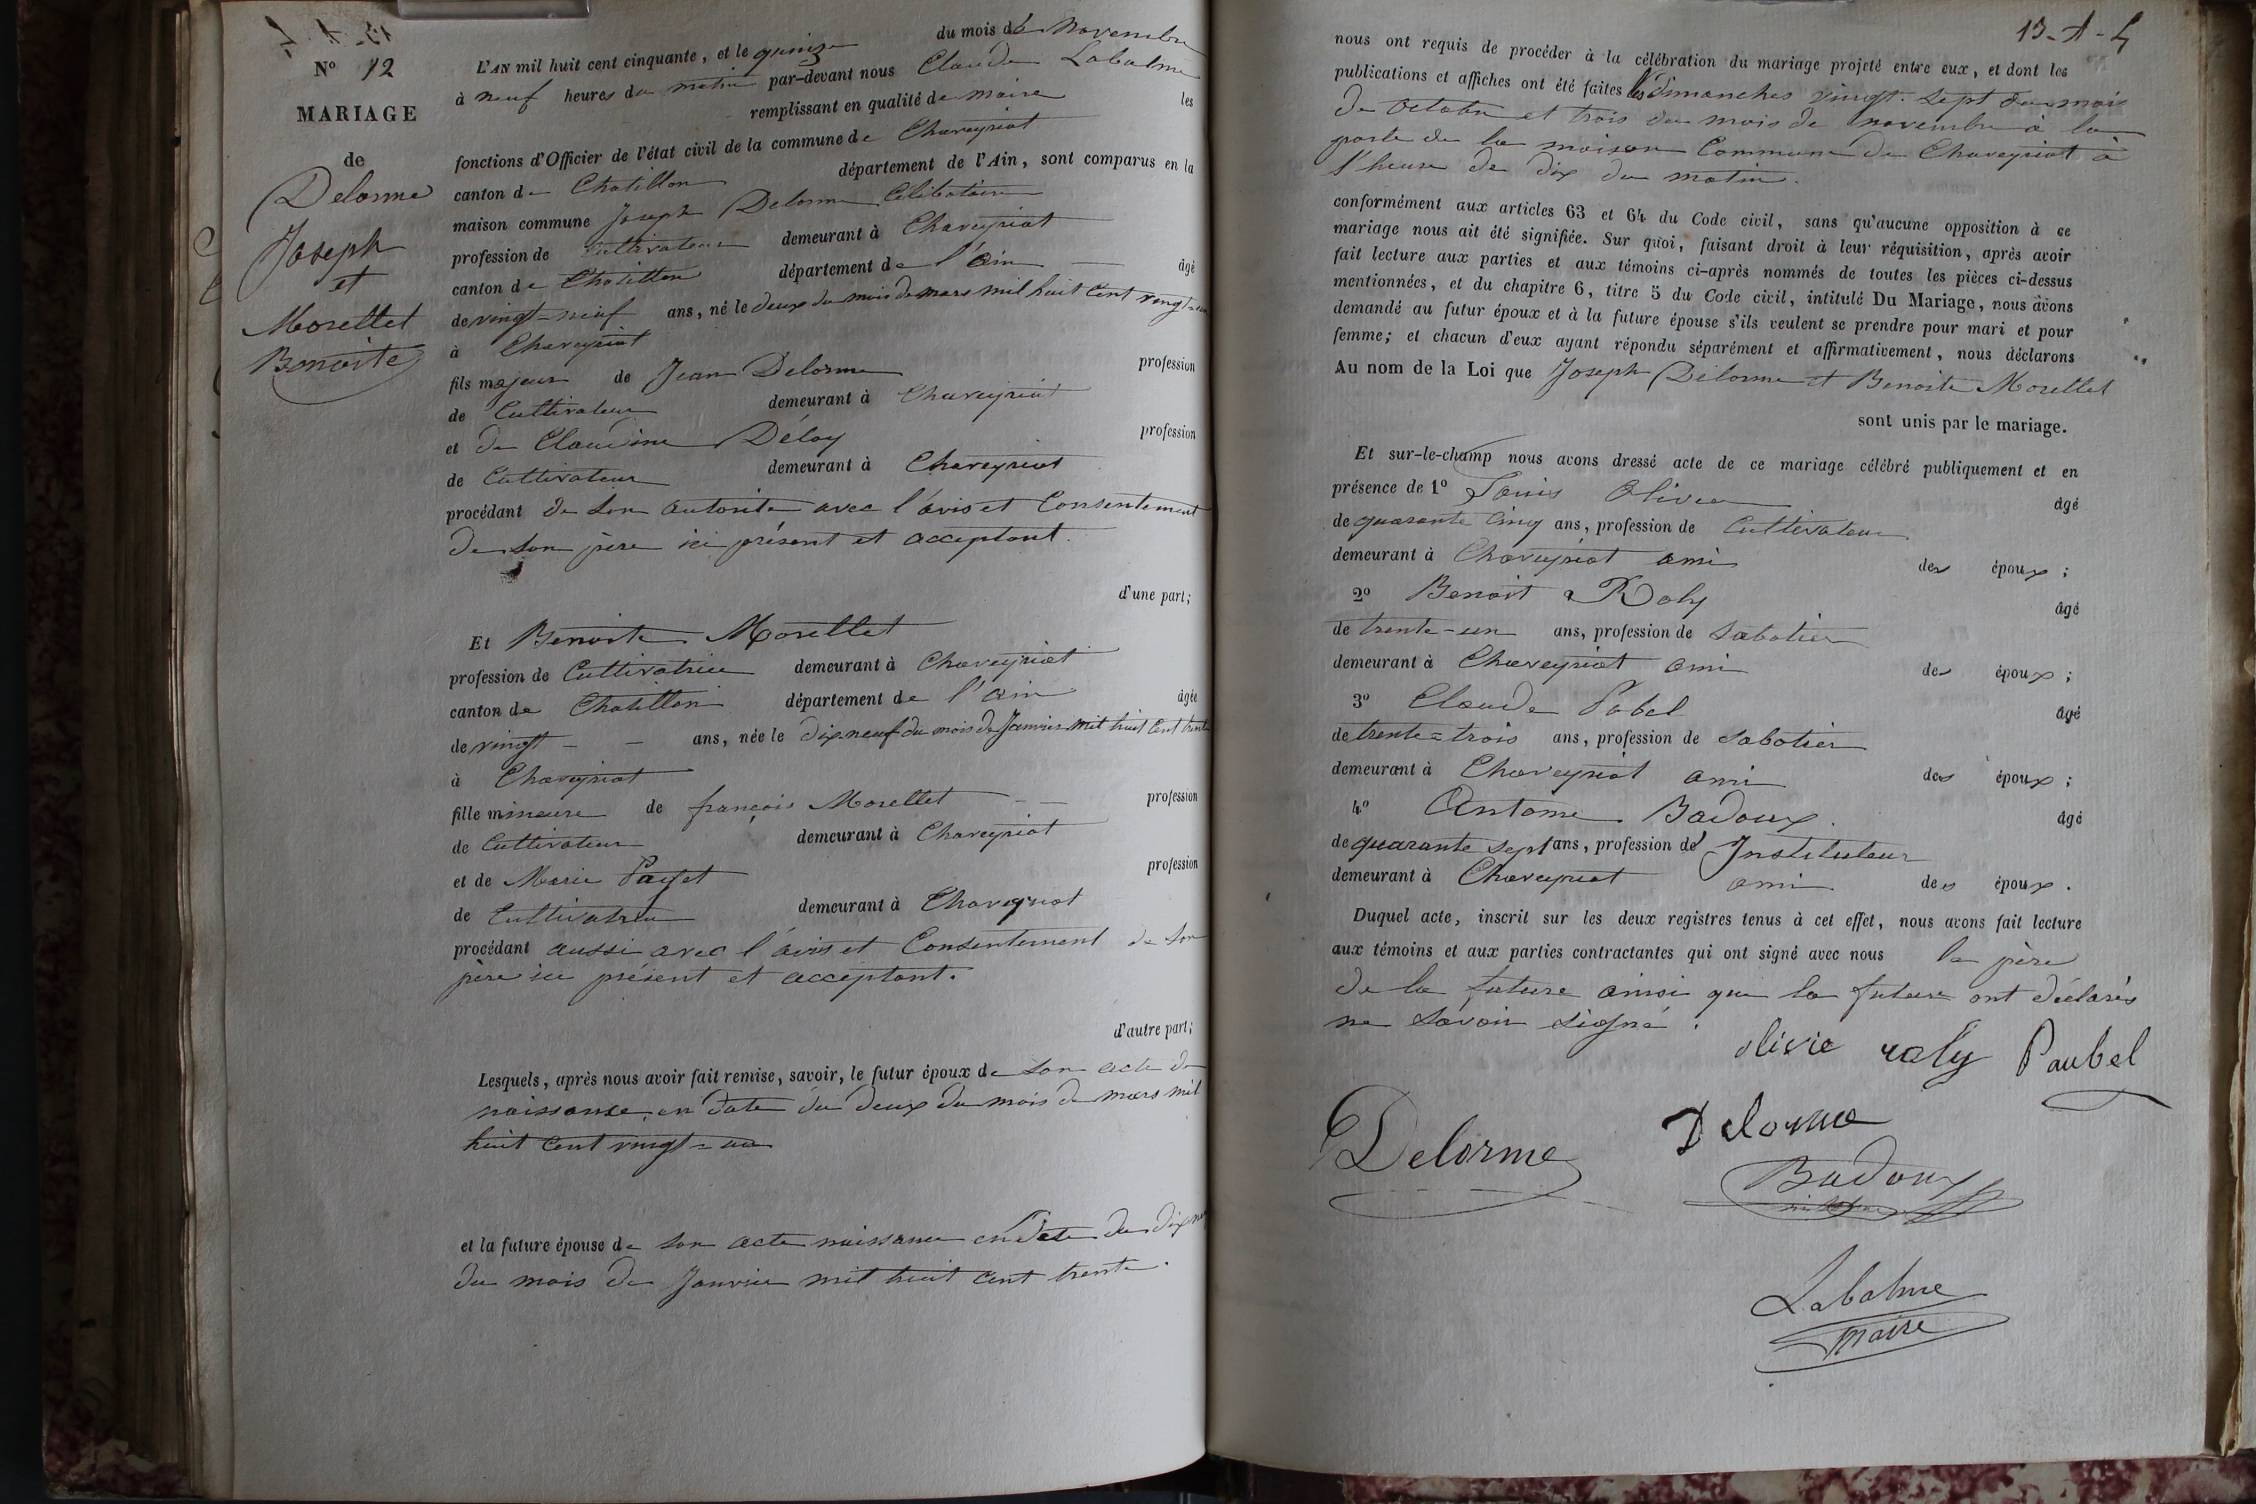 N° 12
MARIAGE
de
Delorme
Joseph
et
Morellet
Benoite
L'AN mil huit cent cinquante, et le quinze du mois de Novembre
à neuf heures du matin par-devant nous Claude Labalme
remplissant en qualité de maire les
fonctions d'Officier de l'état civil de la commune de Chaveyriat
canton de Chatillon département de l'Ain, sont comparus en la
maison commune Joseph Delorme Célibataire
profession de Cultivateur demeurant à Chaveyriat
canton de Chatillon département de l'ain âgé
de vingt-neuf ans, né le deux du mois de mars mil huit cent vingt-un
à Chaveyriat
fils majeur de Jean Delorme profession
de Cultivateur demeurant à Chaveyriat
et de Claudine Déloy profession
de Cultivateur demeurant à Chaveyriat
procédant de son autorité avec l'avis et Consentement
de son père ici présent et acceptant.
d'une part;
Et Benoite Morellet
profession de Cultivatrice demeurant à Chaveyriat
canton de Chatillon département de l'ain âgée
de vingt - - ans, née le dix neuf du mois de Janvier mil huit cent trente
à Chaveyriat
fille mineure de françois Morellet - - profession
de Cultivateur demeurant à Chaveyriat
et de Marie Payet profession
de Cultivatrice demeurant à Chaveyriat
procédant aussi avec l'avis et Consentement de son
père ici présent et acceptant.
d'autre part;
Lesquels, après nous avoir fait remise, savoir, le futur époux de son acte de
naissance en date du deux du mois de mars mil
huit cent vingt-un
et la future épouse de son acte naissance en date du dix neuf
du mois de Janvier mil huit cent trente.
13-A-4
nous ont requis de procéder à la célébration du mariage projeté entre eux, et dont les
publications et affiches ont été faites les dimanches vingt-sept du mois
de octobre et trois du mois de novembre à la
porte de la maison Commune de Chaveyriat à
l'heure de dix du matin.
conformément aux articles 63 et 64 du Code civil, sans qu'aucune opposition à ce
mariage nous ait été signifiée. Sur quoi, faisant droit à leur réquisition, après avoir
fait lecture aux parties et aux témoins ci-après nommés de toutes les pièces ci-dessus
mentionnées, et du chapitre 6, titre 5 du Code civil, intitulé Du Mariage, nous avons
demandé au futur époux et à la future épouse s'ils veulent se prendre pour mari et pour
femme; et chacun d'eux ayant répondu séparément et affirmativement, nous déclarons
Au nom de la Loi que Joseph Delorme et Benoite Morellet
sont unis par le mariage.
Et sur-le-champ nous avons dressé acte de ce mariage célébré publiquement et en
présence de 1° Louis Olivier âgé
de quarante cinq ans, profession de Cultivateur
demeurant à Chaveyriat ami des époux;
2° Benoit Roly âgé
de trente-un ans, profession de Sabotier
demeurant à Chaveyriat ami des époux;
3° Claude Pobel âgé
de trente-trois ans, profession de Sabotier
demeurant à Chaveyriat ami des époux;
4° Antoine Badoux. âgé
de quarante sept ans, profession d' Instituteur
demeurant à Chaveyriat ami des époux.
Duquel acte, inscrit sur les deux registres tenus à cet effet, nous avons fait lecture
aux témoins et aux parties contractantes qui ont signé avec nous le père
de la future ainsi que la future ont déclarés
ne savoir signé.
olivie roly Paubel
Delorme Delorme
Badoux
Labalme
maire